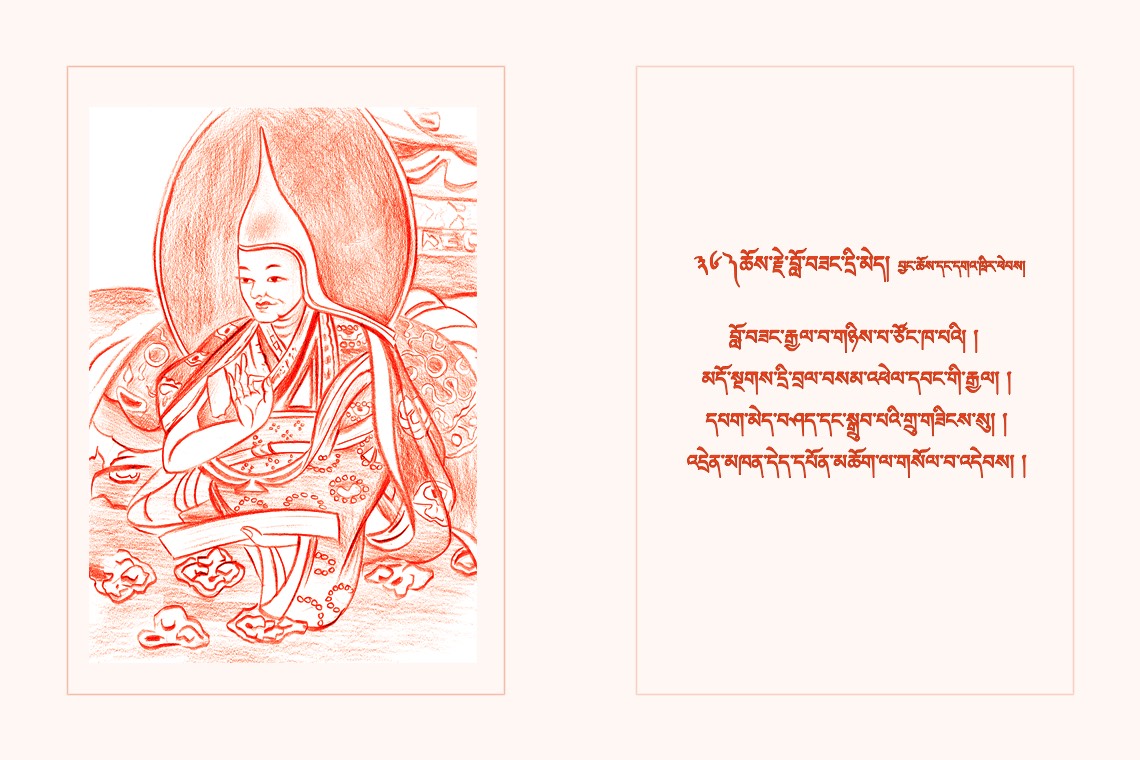 ༣༦ ༽ ཆོས་རྗེ་བློ་བཟང་དྲི་མེད། བྱང་ཆོས་དང་དགའ་ཁྲིར་ཕེབས།
བློ་བཟང་རྒྱལ་བ་གཉིས་པ་ཙོང་ཁ་པའི། །
མདོ་སྔགས་དྲི་བྲལ་བསམ་འཕེལ་དབང་གི་རྒྱལ། །
དཔག་མེད་བཤད་དང་སྒྲུབ་པའི་གྲུ་གཟིངས་སུ། །
འདྲེན་མཁན་དེད་དཔོན་མཆོག་ལ་གསོལ་བ་འདེབས། །